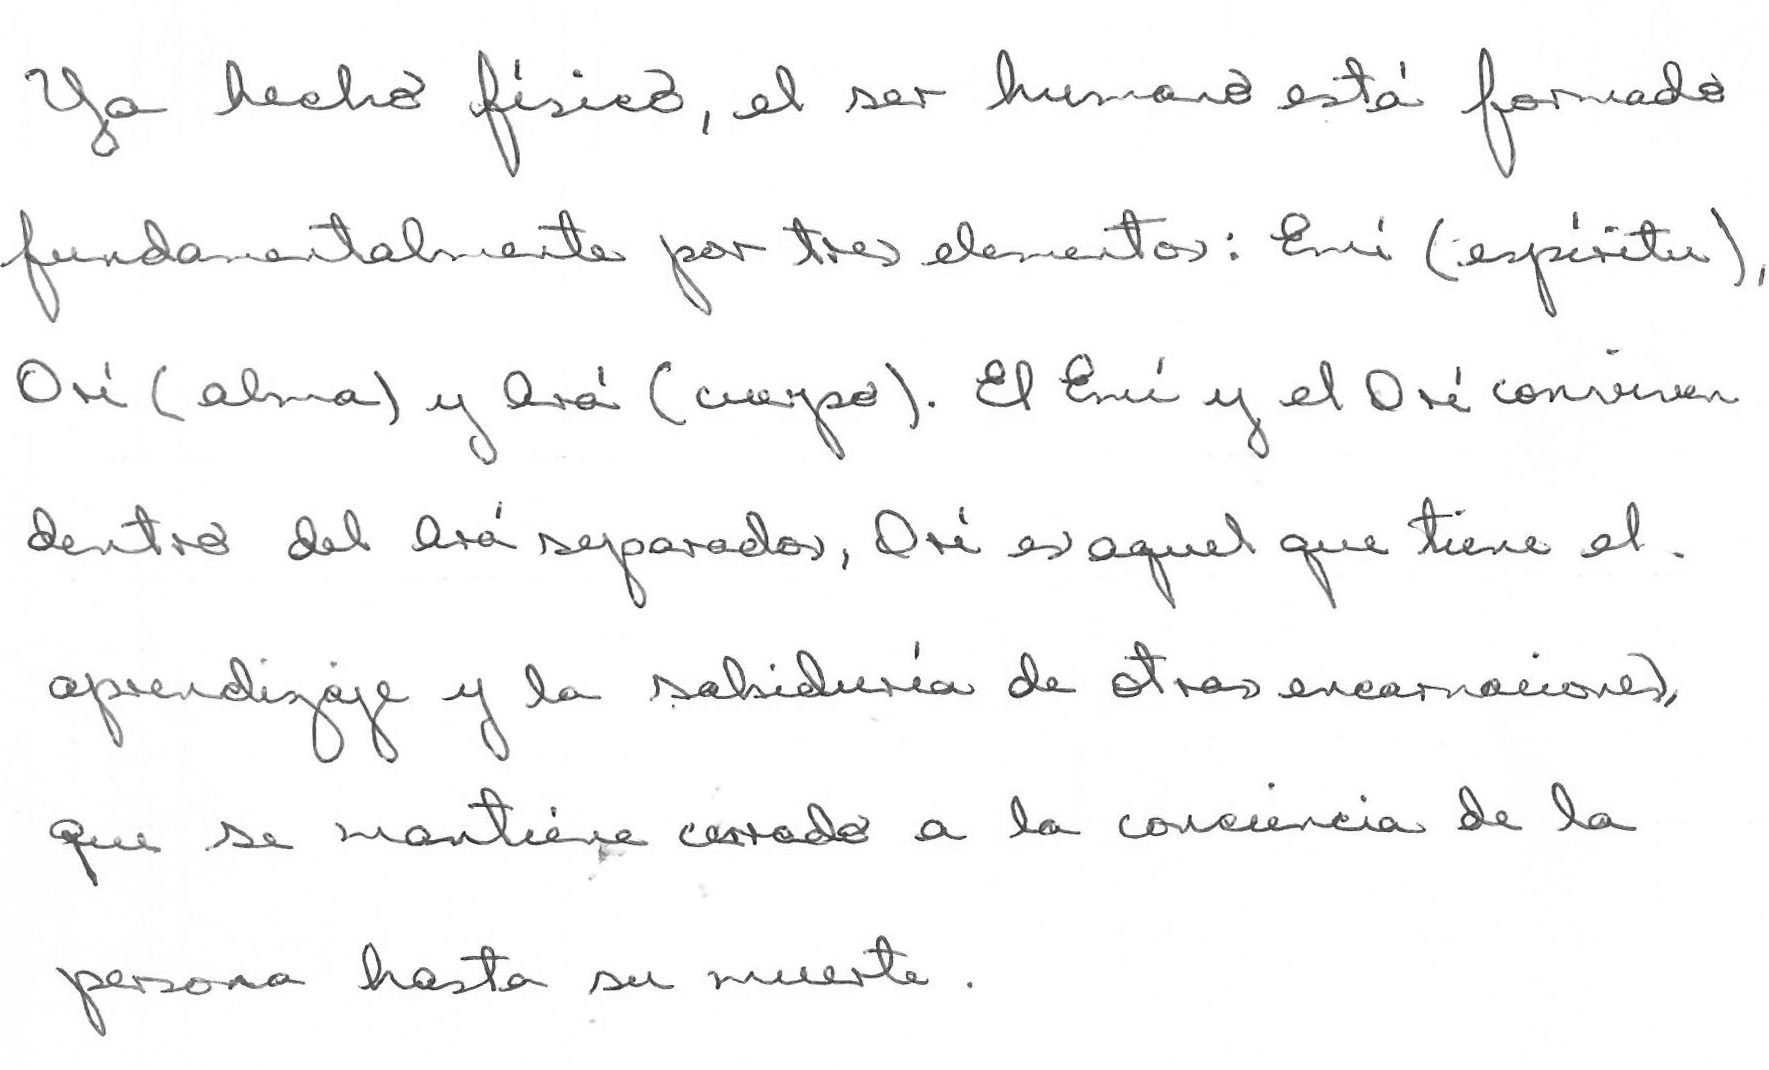 Ya hecho físico, el ser humano está formado
fundamentalmente por tres elementos: Emí (espíritu),
Orí (alma) y Ará (cuerpo). El Emí y el Orí conviven
dentro del Ará separados, Orí es aquel que tiene el.
aprendizaje y la sabiduría de otras encarnaciones,
que se mantiene cerrado a la conciencia de la
persona hasta su muerte.